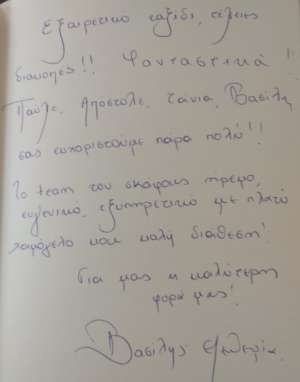 Εξαιρετικό ταξίδι, τέλειες
διακοπές!! Φανταστικά!
Παύλε, Αποστόλε, Τάνια, Βασίλη
σας ευχαριστούμε πάρα πολύ!!
Το team του σκάφους ήρεμο,
ευγενικό, εξυπηρετικό με πλατύ
χαμόγελο και καλή διάθεση!
Για μας η καλύτερη
φορά μας!
Βασίλης